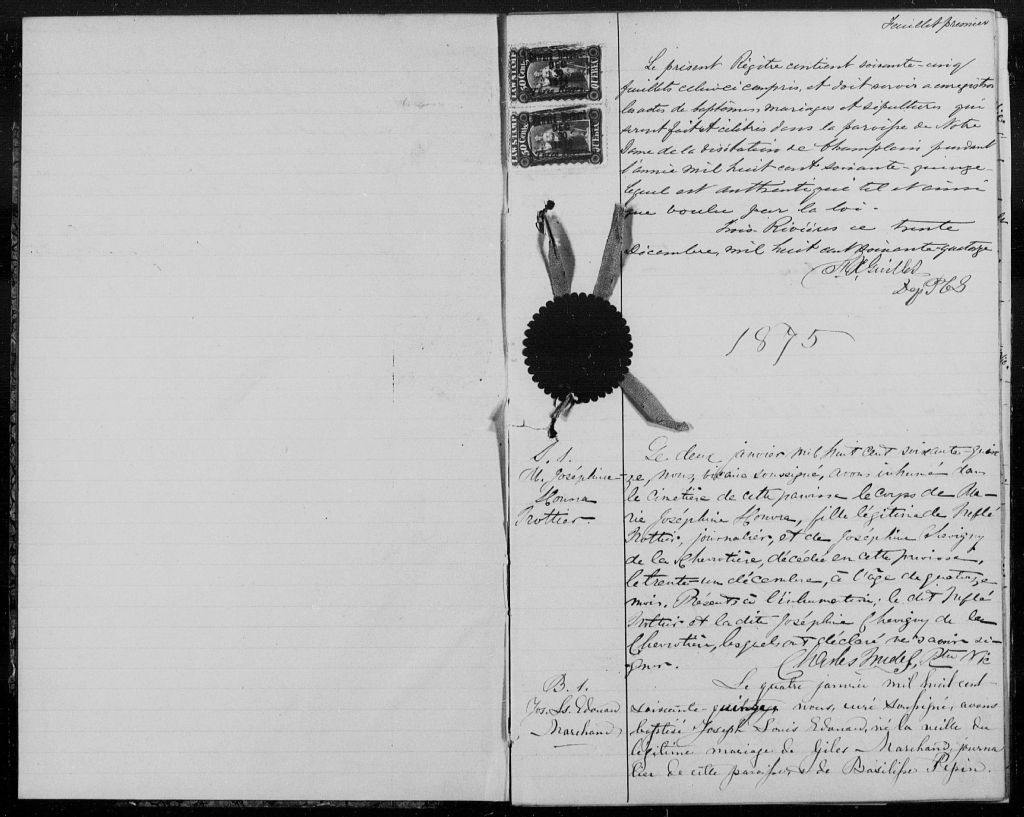 Feuillet premier
Le présent Régitre contient soixante-cinq
feuillets celui-ci compris, et doit servir a enregistrer
les actes de baptêmes, mariages et sépultures qui
seront fait et célébrés dans la paroisse de Notre
Dame de la Visitation de Champlain pendant
l'année mil huit cent soixante-quinze
lequel est authentiqué tel et ainsi
que voulu par la loi.
Trois-Rivières ce trente
décembre, mil huit cent soixante-quatorze
Guillet
Dep P C S
1875
LAW STAMP
50 Cents
QUEBEC
LAW STAMP
50 Cents
QUEBEC
S. 1.
M. Joséphine
Honora
Trottier
Le deux janvier mil huit cent soixante-quin-
ze, nous, vicaire soussigné, avons inhumé dans
le cimetière de cette paroisse le corps de Ma-
rie Joséphine Honora, fille légitime de Treflé
Trottier, journalier, et de Joséphine Chevigny
de la Chevrotière, décédée en cette paroisse,
le trente-un décembre, à l'âge de quatorze
mois. Présents à l'inhumation, le dit Treflé
Trottier et la dite Joséphine Chevigny de la
Chevrotière, lesquels ont déclaré ne savoir si-
gner.
Charles Trudel, Ptre Vic
B. 1.
Jos. Ls. Edouard
Marchand
Le quatre janvier mil huit cent
soixante-quinze nous, curé soussigné, avons
baptisé Joseph Louis Edouard, né la veille du
légitime mariage de Giles Marchand, journa
lier de cette paroisse & de Basilisse Pepin.